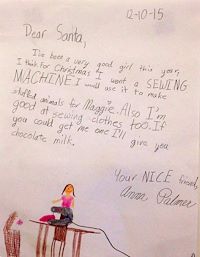 12-10-15
Dear Santa,
I've been a very good girl this year,
I think for Christmas I want a SEWING
MACHINE I would use it to make
stuffed animals for Maggie. Also I'm
good at sewing clothes too. If
you could get me one I'll give you
chocolate milk.
Your NICE friend,
Anna Palmer